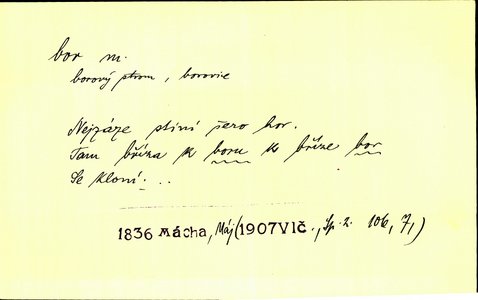 bor m.
borový strom, borovice
Nejzáze stíní šero hor.
Tam bříza k boru k bříze bor
Se kloní. . .
1836 Mácha, Máj (1907 Vlč., Sp. 2. 106, 7,)